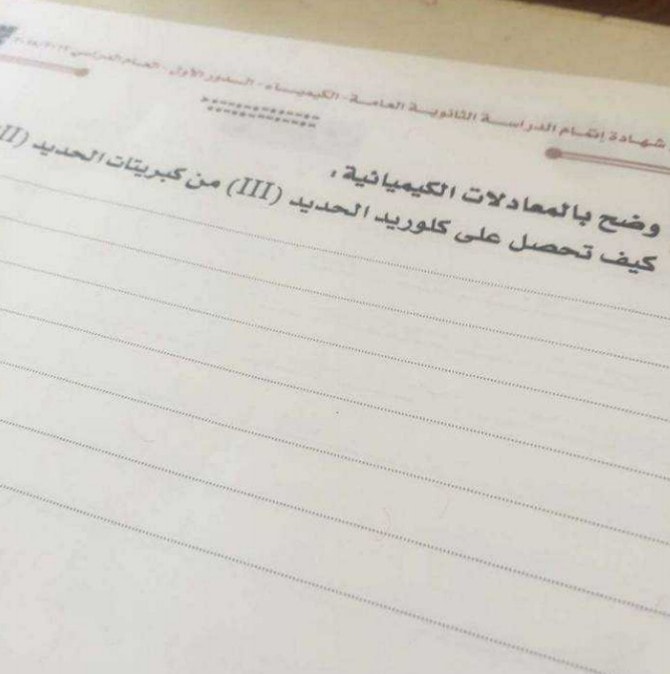 شهادة إتمام الدراسة الثانوية العامة - الكيمياء - الدور الأول - العام الدراسي
وضح بالمعادلات الكيميائية :
كيف تحصل على كلوريد الحديد (III) من كبريتات الحديد (II